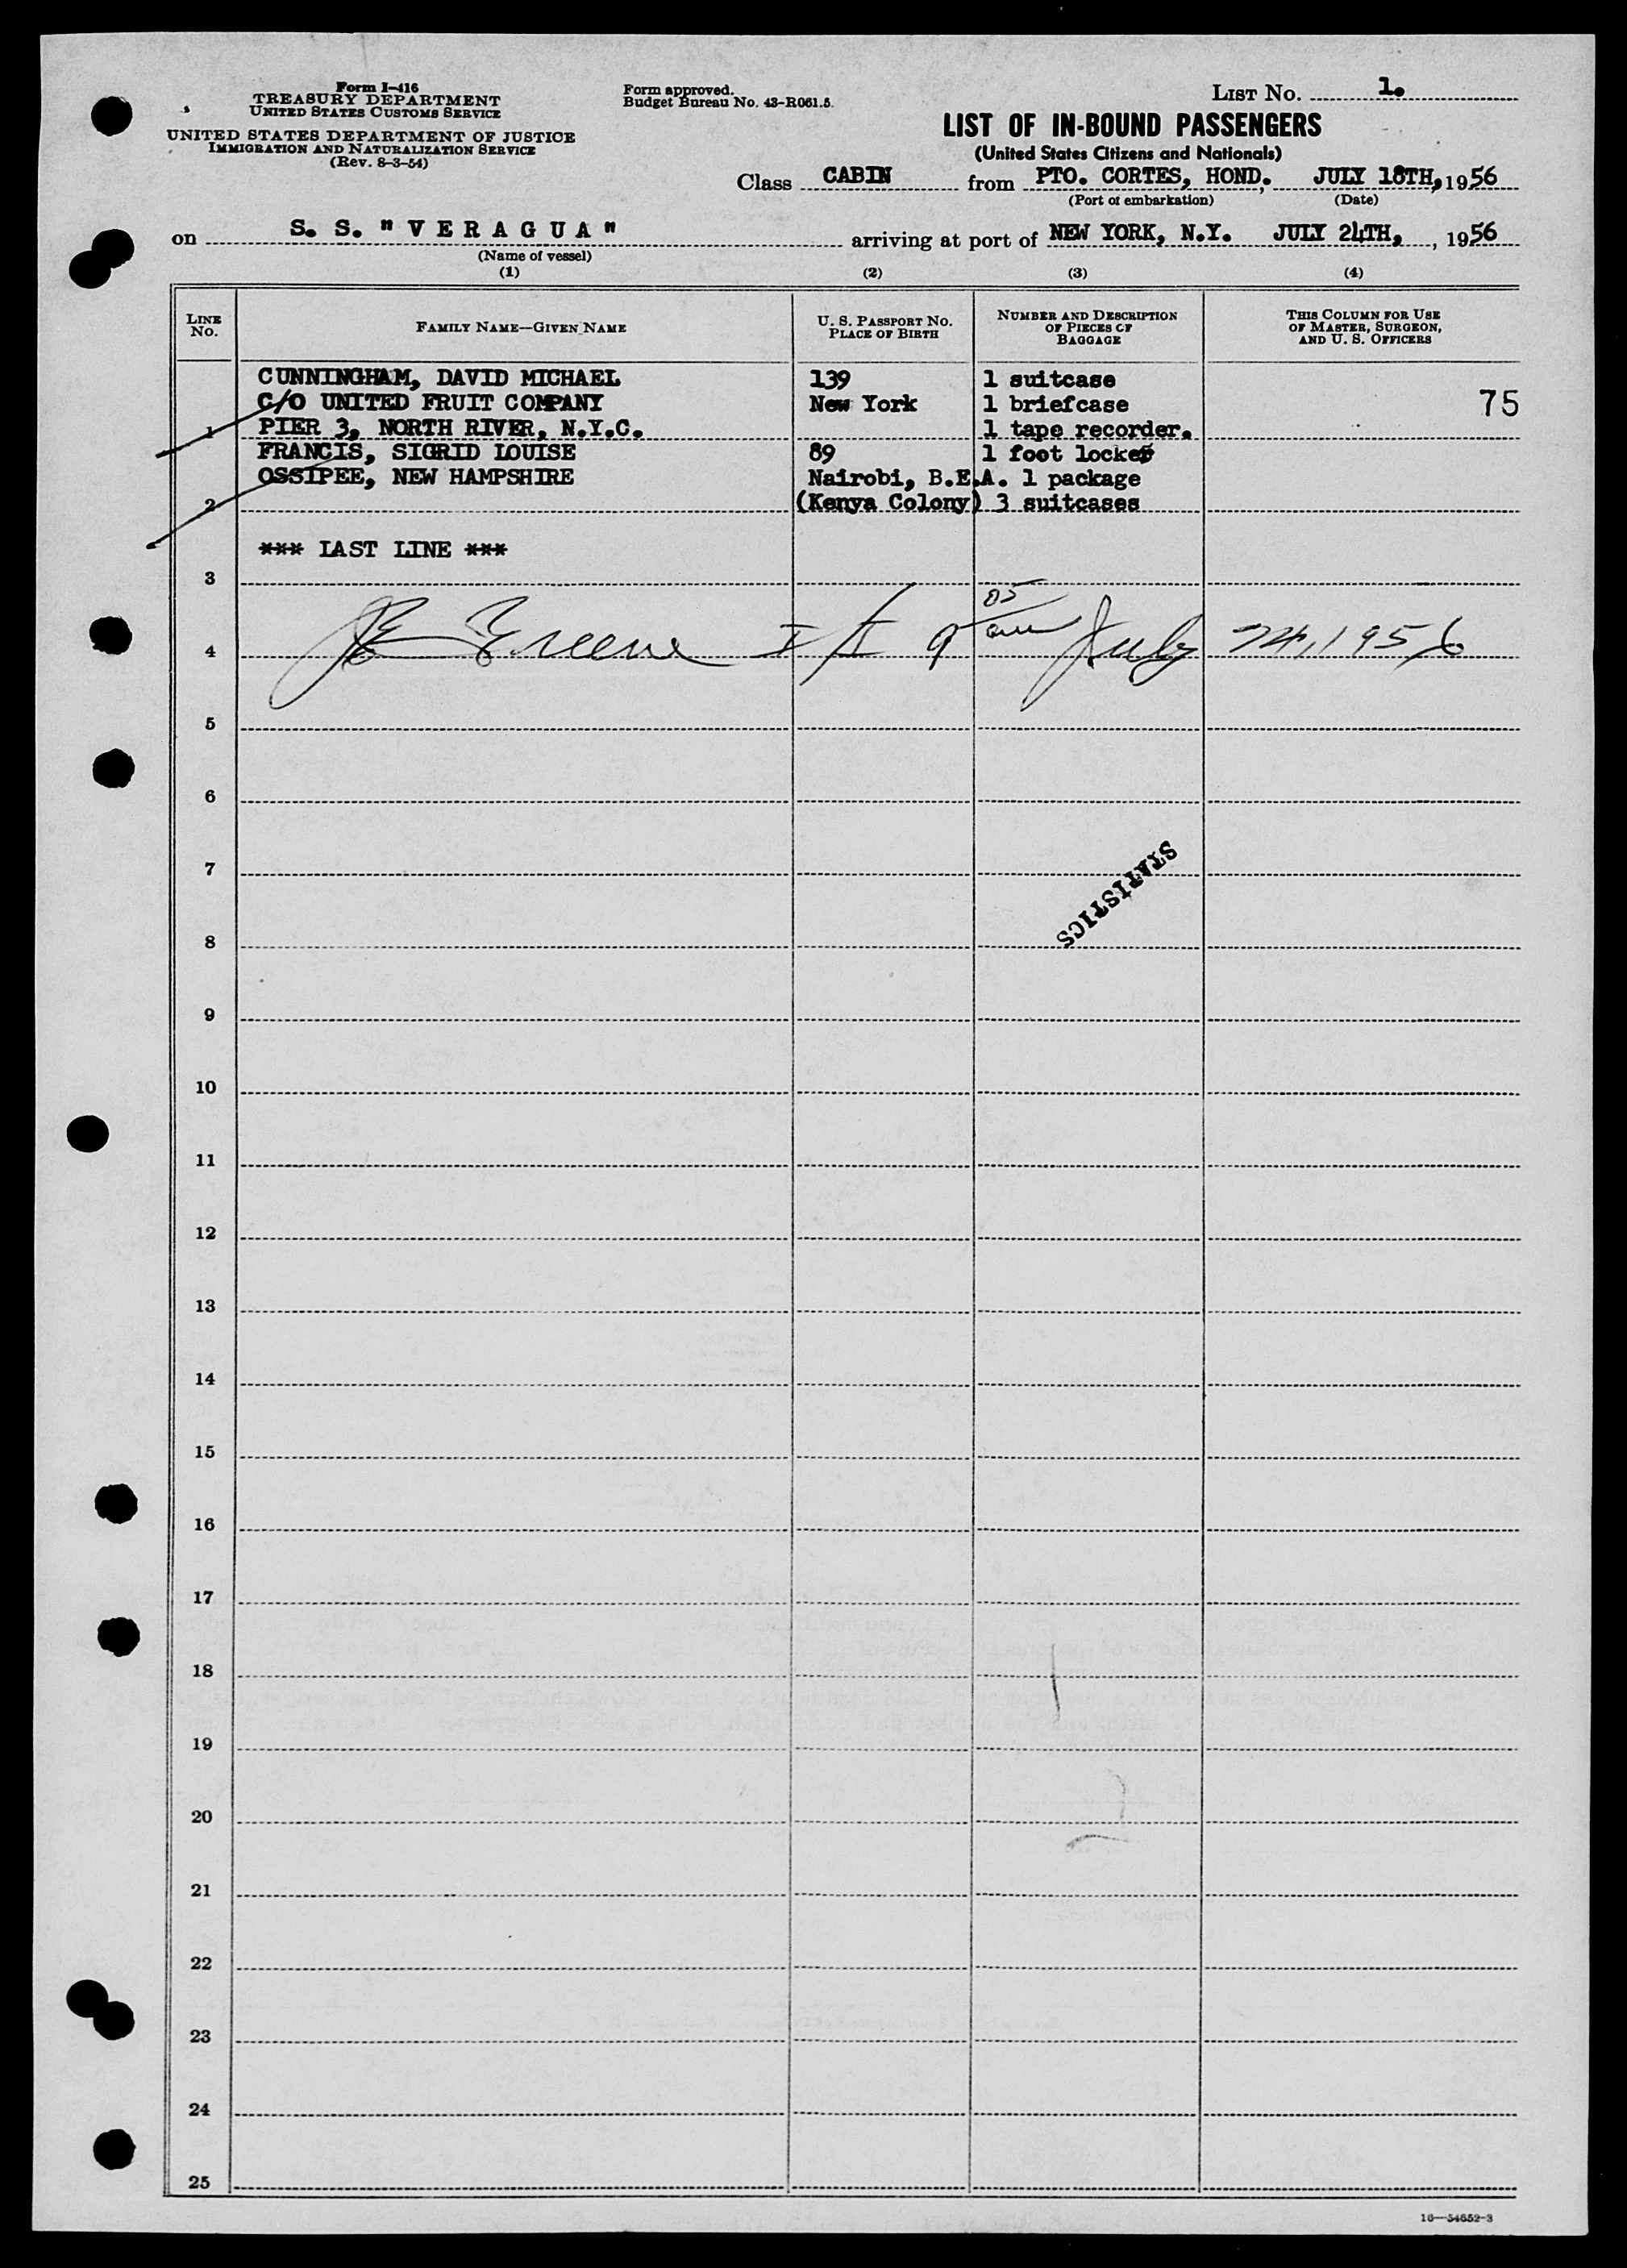 Form I-416
TREASURY DEPARTMENT
UNITED STATES CUSTOMS SERVICE
UNITED STATES DEPARTMENT OF JUSTICE
IMMIGRATION AND NATURALIZATION SERVICE
(Rev. 8-3-54)
Form approved.
Budget Bureau No. 43-R061.5.
LIST NO. 1.
LIST OF IN-BOUND PASSENGERS
(United States Citizens and Nationals)
Class CABIN from PTO. CORTES, HOND., JULY 18TH, 1956
(Port of embarkation) (Date)
on S. S. "VERAGUA" arriving at port of NEW YORK, N.Y. JULY 24TH, , 1956
(Name of vessel)
(1) (2) (3) (4)
LINE NO.
FAMILY NAME—GIVEN NAME
U. S. PASSPORT NO.
PLACE OF BIRTH
NUMBER AND DESCRIPTION
OF PIECES OF
BAGGAGE
THIS COLUMN FOR USE
OF MASTER, SURGEON,
AND U. S. OFFICERS
CUNNINGHAM, DAVID MICHAEL 139 1 suitcase
C/O UNITED FRUIT COMPANY New York 1 briefcase 75
1 PIER 3, NORTH RIVER, N.Y.C. 1 tape recorder.
FRANCIS, SIGRID LOUISE 89 1 foot locker
OSSIPEE, NEW HAMPSHIRE Nairobi, B.E.A. 1 package
2 (Kenya Colony) 3 suitcases
*** LAST LINE ***
3
4 Greene I/I 9 05 am July 24, 1956
5
6
7
STATISTICS
8
9
10
11
12
13
14
15
16
17
18
19
20
21
22
23
24
25
16—54652-3